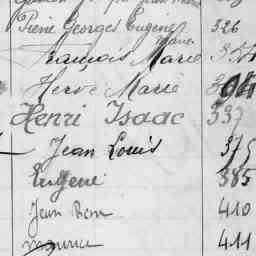 Pierre Georges Eugène 326
Marie
François Marie
Hervé Marie
Henri Isaac 337
Jean Louis 375
Eugène 385
Jean 410
Maurice 411